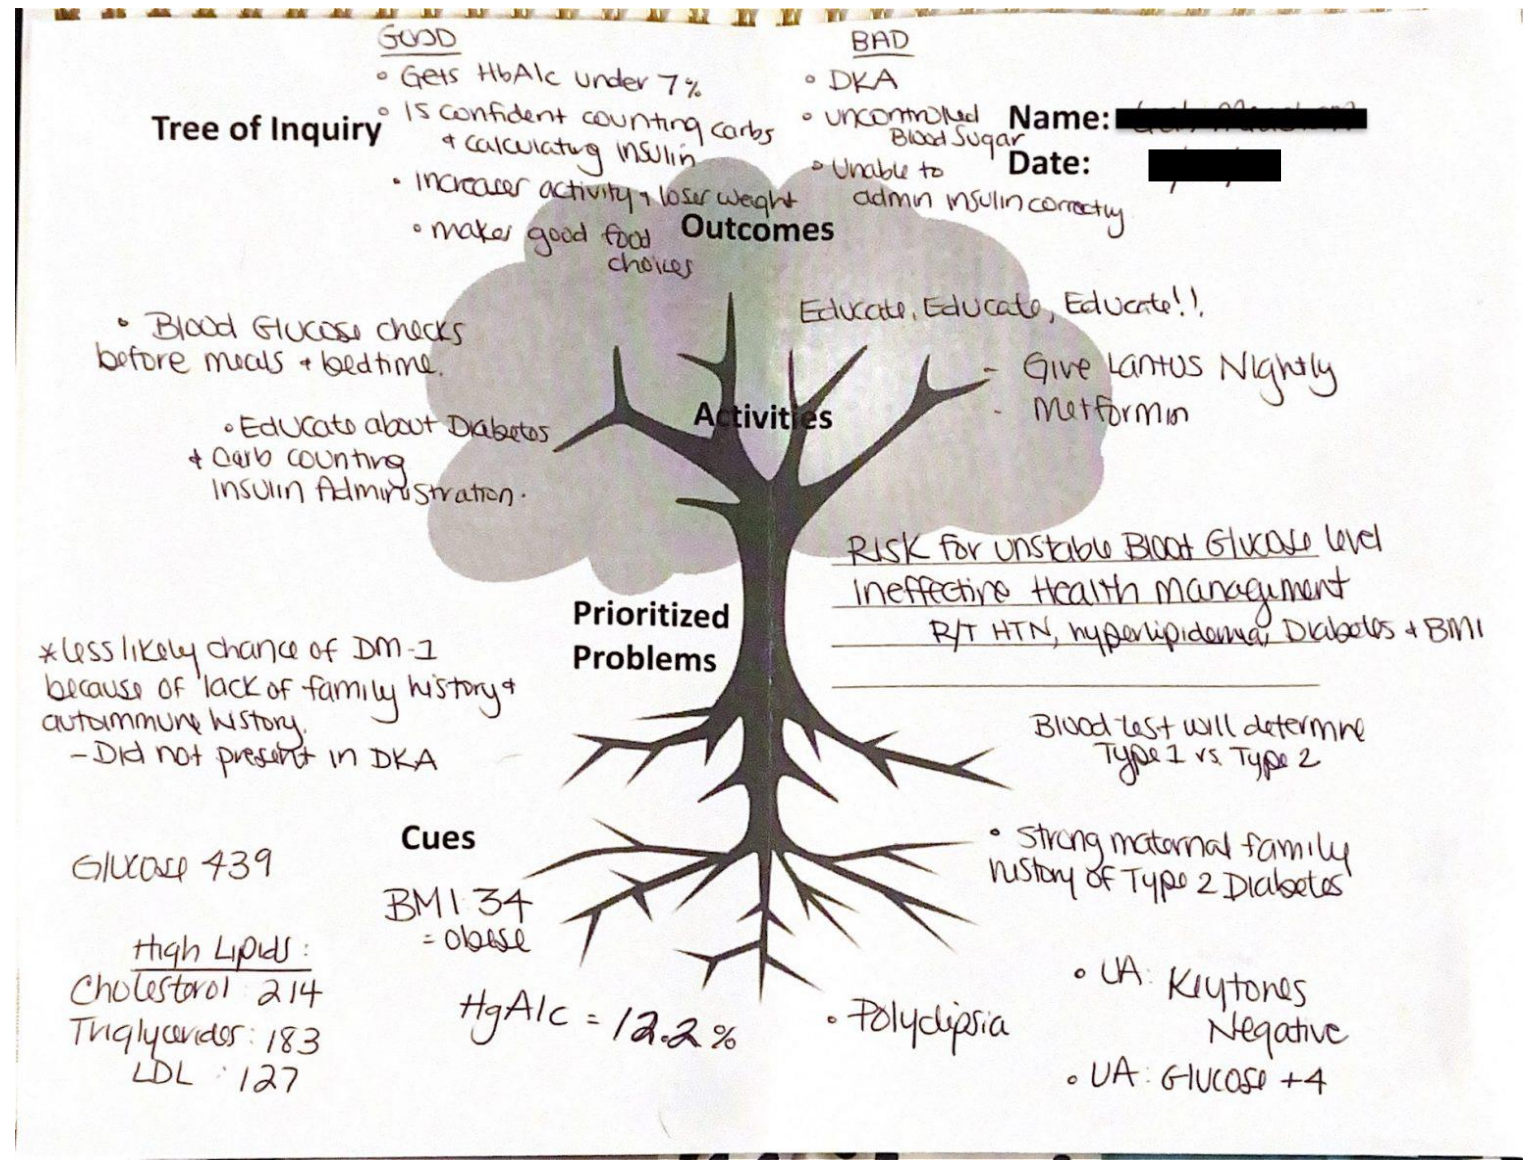 GOOD
• Gets HbA1c under 7%
• Is confident counting carbs
+ calculating insulin
• increases activity + loses weight
• makes good food
choices
BAD
• DKA
• uncontrolled
Blood Sugar
• Unable to
admin insulin correctly
Tree of Inquiry
Name:
Date:
Outcomes
• Blood Glucose checks
before meals + bedtime.
• Educate about Diabetes
+ Carb counting
Insulin Administration.
Educate, Educate, Educate!!
- Give Lantus Nightly
- Metformin
Activities
Prioritized
Problems
Risk for unstable Blood Glucose level
Ineffective Health Management
R/T HTN, hyperlipidemia, Diabetes + BMI
*less likely chance of DM-1
because of lack of family history +
autoimmune history.
- Did not present in DKA
Blood test will determine
Type 1 vs. Type 2
Cues
Glucose 439
BMI 34
= obese
High Lipids:
Cholesterol 214
Triglycerides: 183
LDL : 127
HgA1c = 12.2%
• Strong maternal family
history of Type 2 Diabetes
• Polydipsia
• UA: Keytones
Negative
• UA: Glucose +4